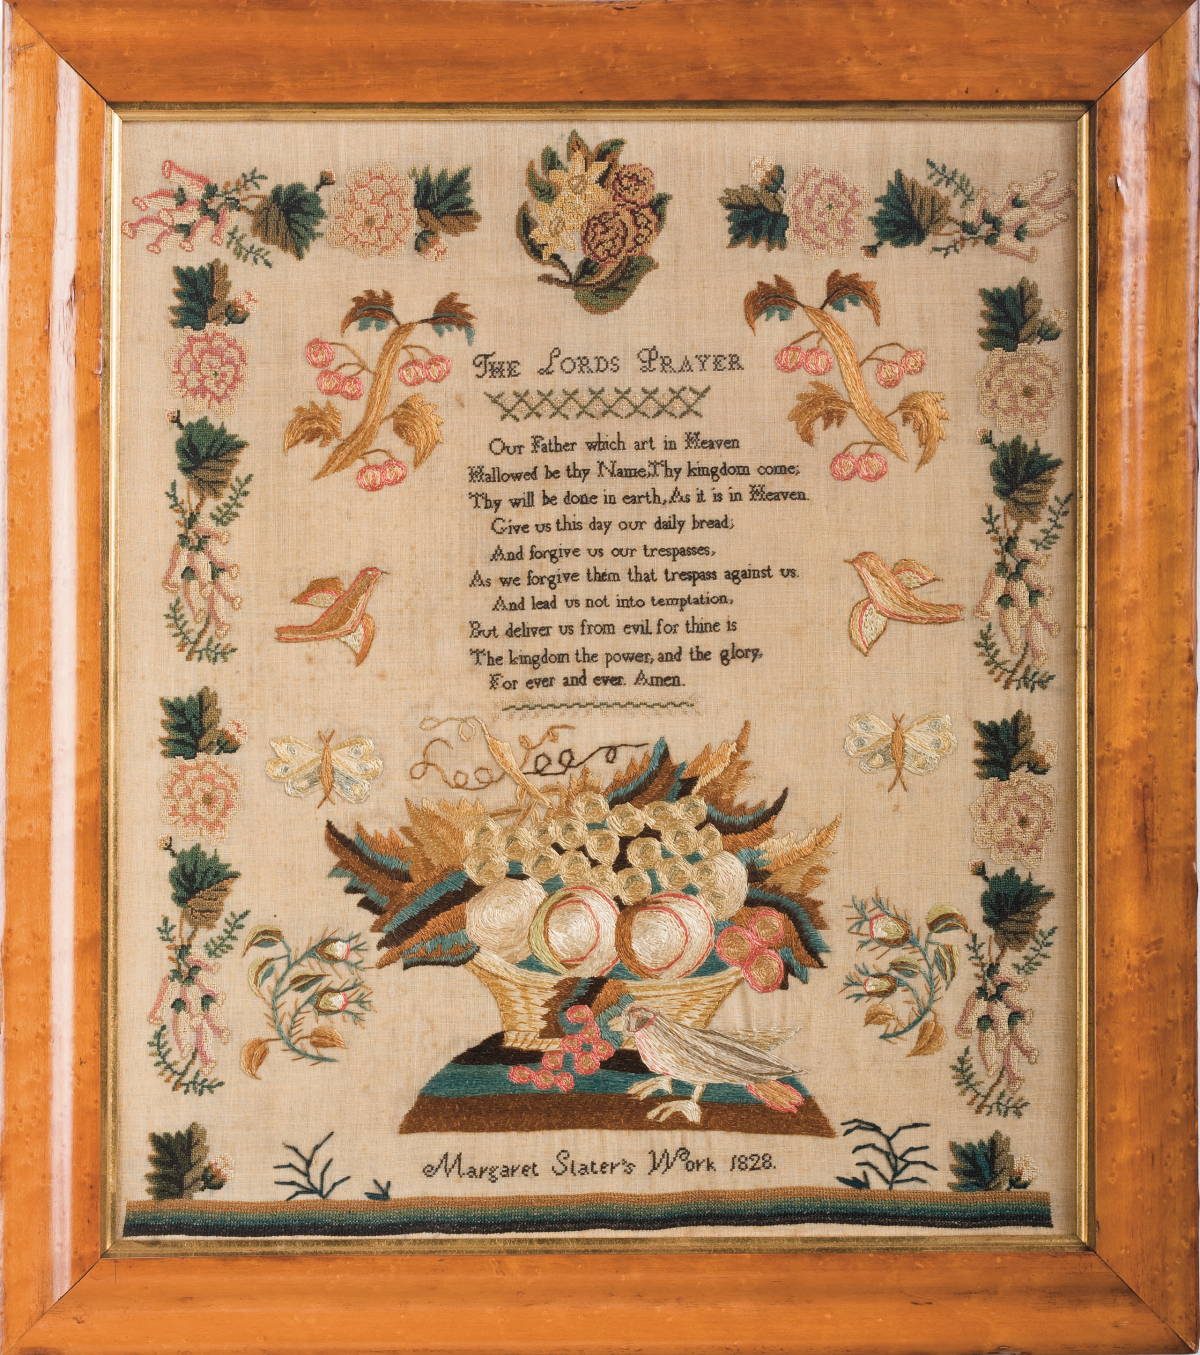 The Lords Prayer
Our Father which art in Heaven
Hallowed be thy Name, Thy kingdom come;
Thy will be done in earth, As it is in Heaven.
Give us this day our daily bread;
And forgive us our trespasses,
As we forgive them that trespass against us.
And lead us not into temptation,
But deliver us from evil for thine is
The kingdom the power, and the glory,
For ever and ever. Amen.
Margaret Slater's Work 1828.